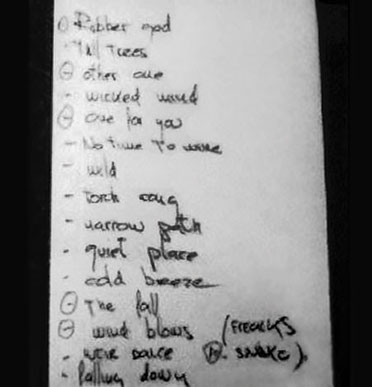 Rubber god
- Tall Trees
other one
- wicked mind
one for you
- No time To wake
- wild
- Torch song
- narrow path
- quiet place
- cold breeze
The fall
wind blows (FREAKYS
- dance SNAKE)
- falling down